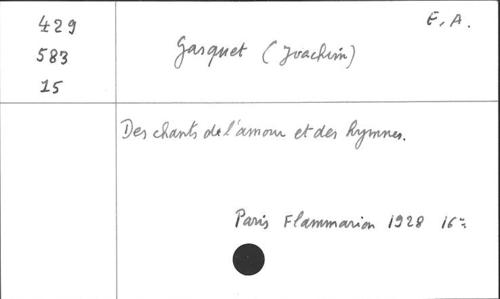 429
583
15
E, A.
Gasquet (Joachim)
Des chants de l'amour et des hymnes.
Paris Flammarion 1928 16°